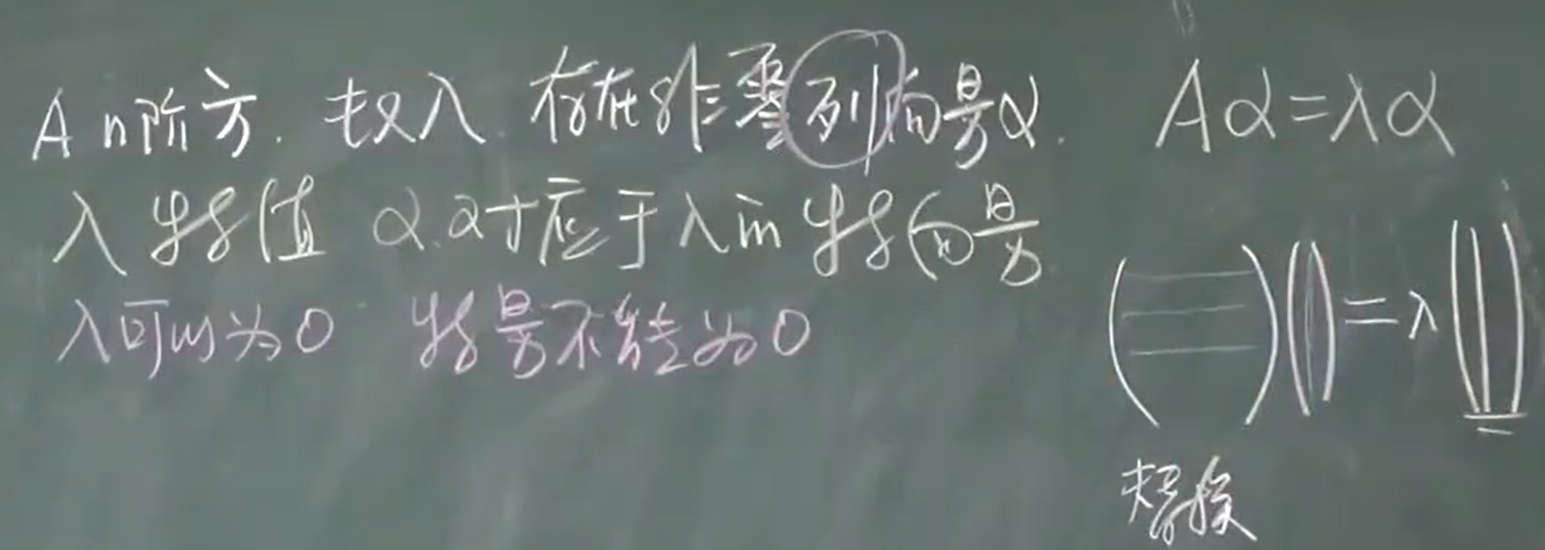 A n阶方. 数λ. 存在非零列向量α. Aα=λα
λ 特征值 α.对应于λ的 特征向量
λ可以为0 特征向量不能为0
( ) ( ) = λ ( )
替换